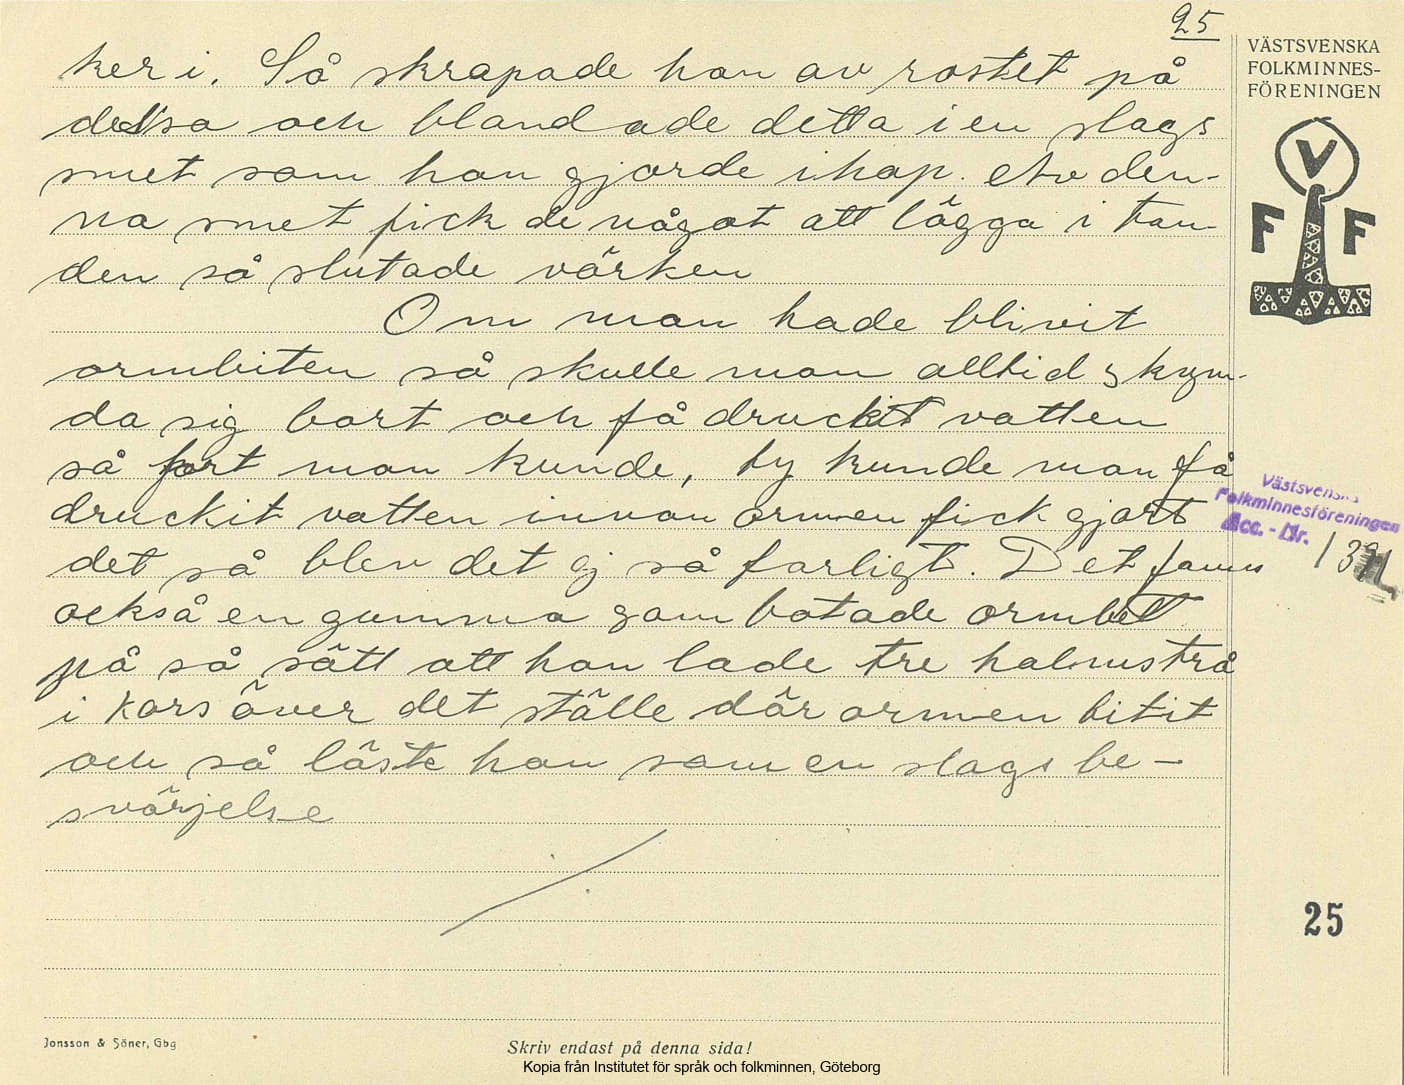 25
ker i. Så skrapade han av rostet på
dessa och blandade detta i en slags
smet som han gjorde ihop. Av den-
na smet fick de något att lägga i tan-
den så slutade värken
Om man hade blivit
ormbiten så skulle man alltid skyn-
da sig bort och få druckit vatten
så fort man kunde, ty kunde man få
druckit vatten innan ormen fick gjort
det så blev det ej så farligt. Det fanns
också en gumma som botade ormbett
på så sätt att han lade tre halmstrå
i kors över det ställe där ormen bitit
och så läste han som en slags be-
svärjelse
VÄSTSVENSKA
FOLKMINNES-
FÖRENINGEN
V
F F
Västsvenska
Folkminnesföreningen
Acc. - Nr.
25
Jonsson & Söner, Gbg
Skriv endast på denna sida!
Kopia från Institutet för språk och folkminnen, Göteborg